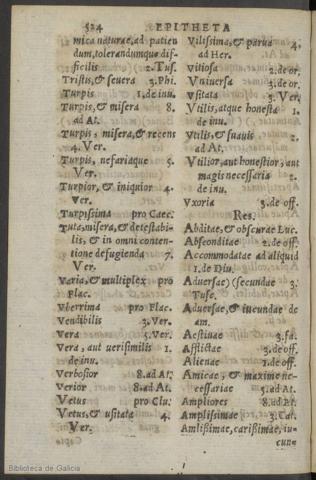 524 EPITHETA
mica naturae, ad patien
dum, tolerandumque dif-
ficilis 2. Tus.
Tristis, & seuera 3. Phi.
Turpis 1. de inu.
Turpis, & misera 8.
ad At.
Turpis, misera, & recens
4. Ver.
Turpis, nefariaque 5.
Ver.
Turpior, & iniquior 4.
Ver.
Turpissima pro Caec.
Tuta, misera, & detestabi-
lis, & in omni conten-
tione defugienda 7.
Ver.
Varia, & multiplex pro
Flac.
Vberrima pro Flac.
Vendibilis 3. Ver.
Vera 5. Ver.
Vera, aut verisimilis 1.
de inu.
Verbosior 8. ad At.
Verior 8. ad At.
Vetus pro Clu.
Vetus, & vsitata 4.
Ver.
Vilissima, & parua 4.
ad Her.
Vitiosa 2. de or.
Vniuersa 3. de or.
Vsitata 3. Ver.
Vtilis, atque honesta 1.
de inu.
Vtilis, & suauis 2.
ad At.
Vtilior, aut honestior, aut
magis necessaria 2.
de inu.
Vxoria 3. de off.
Res.
Abditae, & obscurae Luc.
Absconditae 2. de off.
Accommodatae ad aliquid
1. de Diu.
Aduersae) (secundae 3.
Tusc.
Aduersae, & iucundae de
am.
Aestiuae 3. fa.
Afflictae 3. de off.
Alienae 1. de off.
Amicae, & maxime ne-
cessariae 5. ad At.
Ampliores 8. ad Pt.
Amplissimae 3. Cat.
Amlissimae, carissimae, iu-
cun
Biblioteca de Galicia